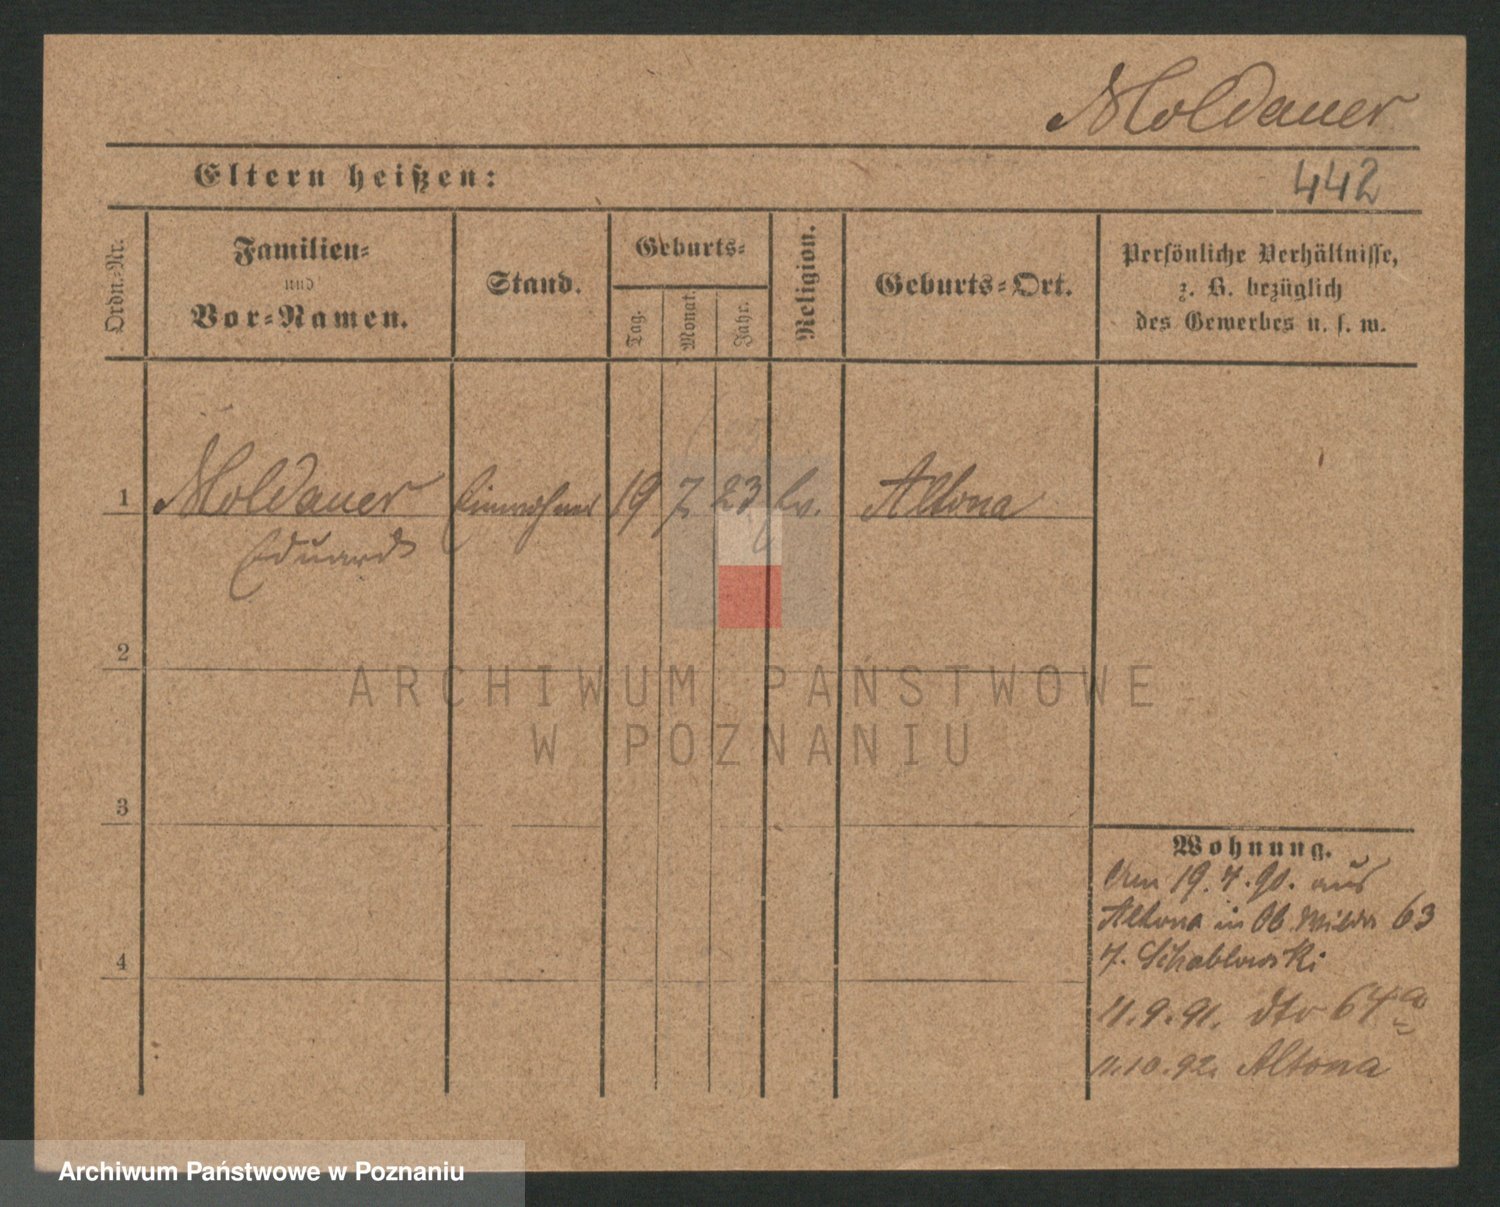 Moldauer
Eltern heißen:
442
Ordn.-Nr.
Familien-
und
Vor-Namen.
Stand.
Geburts-
Tag.
Monat.
Jahr.
Religion.
Geburts-Ort.
Persönliche Verhältnisse,
z. B. bezüglich
des Gewerbes u. s. w.
1 Moldauer Einwohner 19 7 23 Ev. Altona
Eduard
2
3
4
Wohnung.
Am 19.4.90. aus
Altona in Ob. Wilda 63
Schablowski
11.9.91. dto 64a
11.10.92. Altona
ARCHIWUM PAŃSTWOWE
W POZNANIU
Archiwum Państwowe w Poznaniu